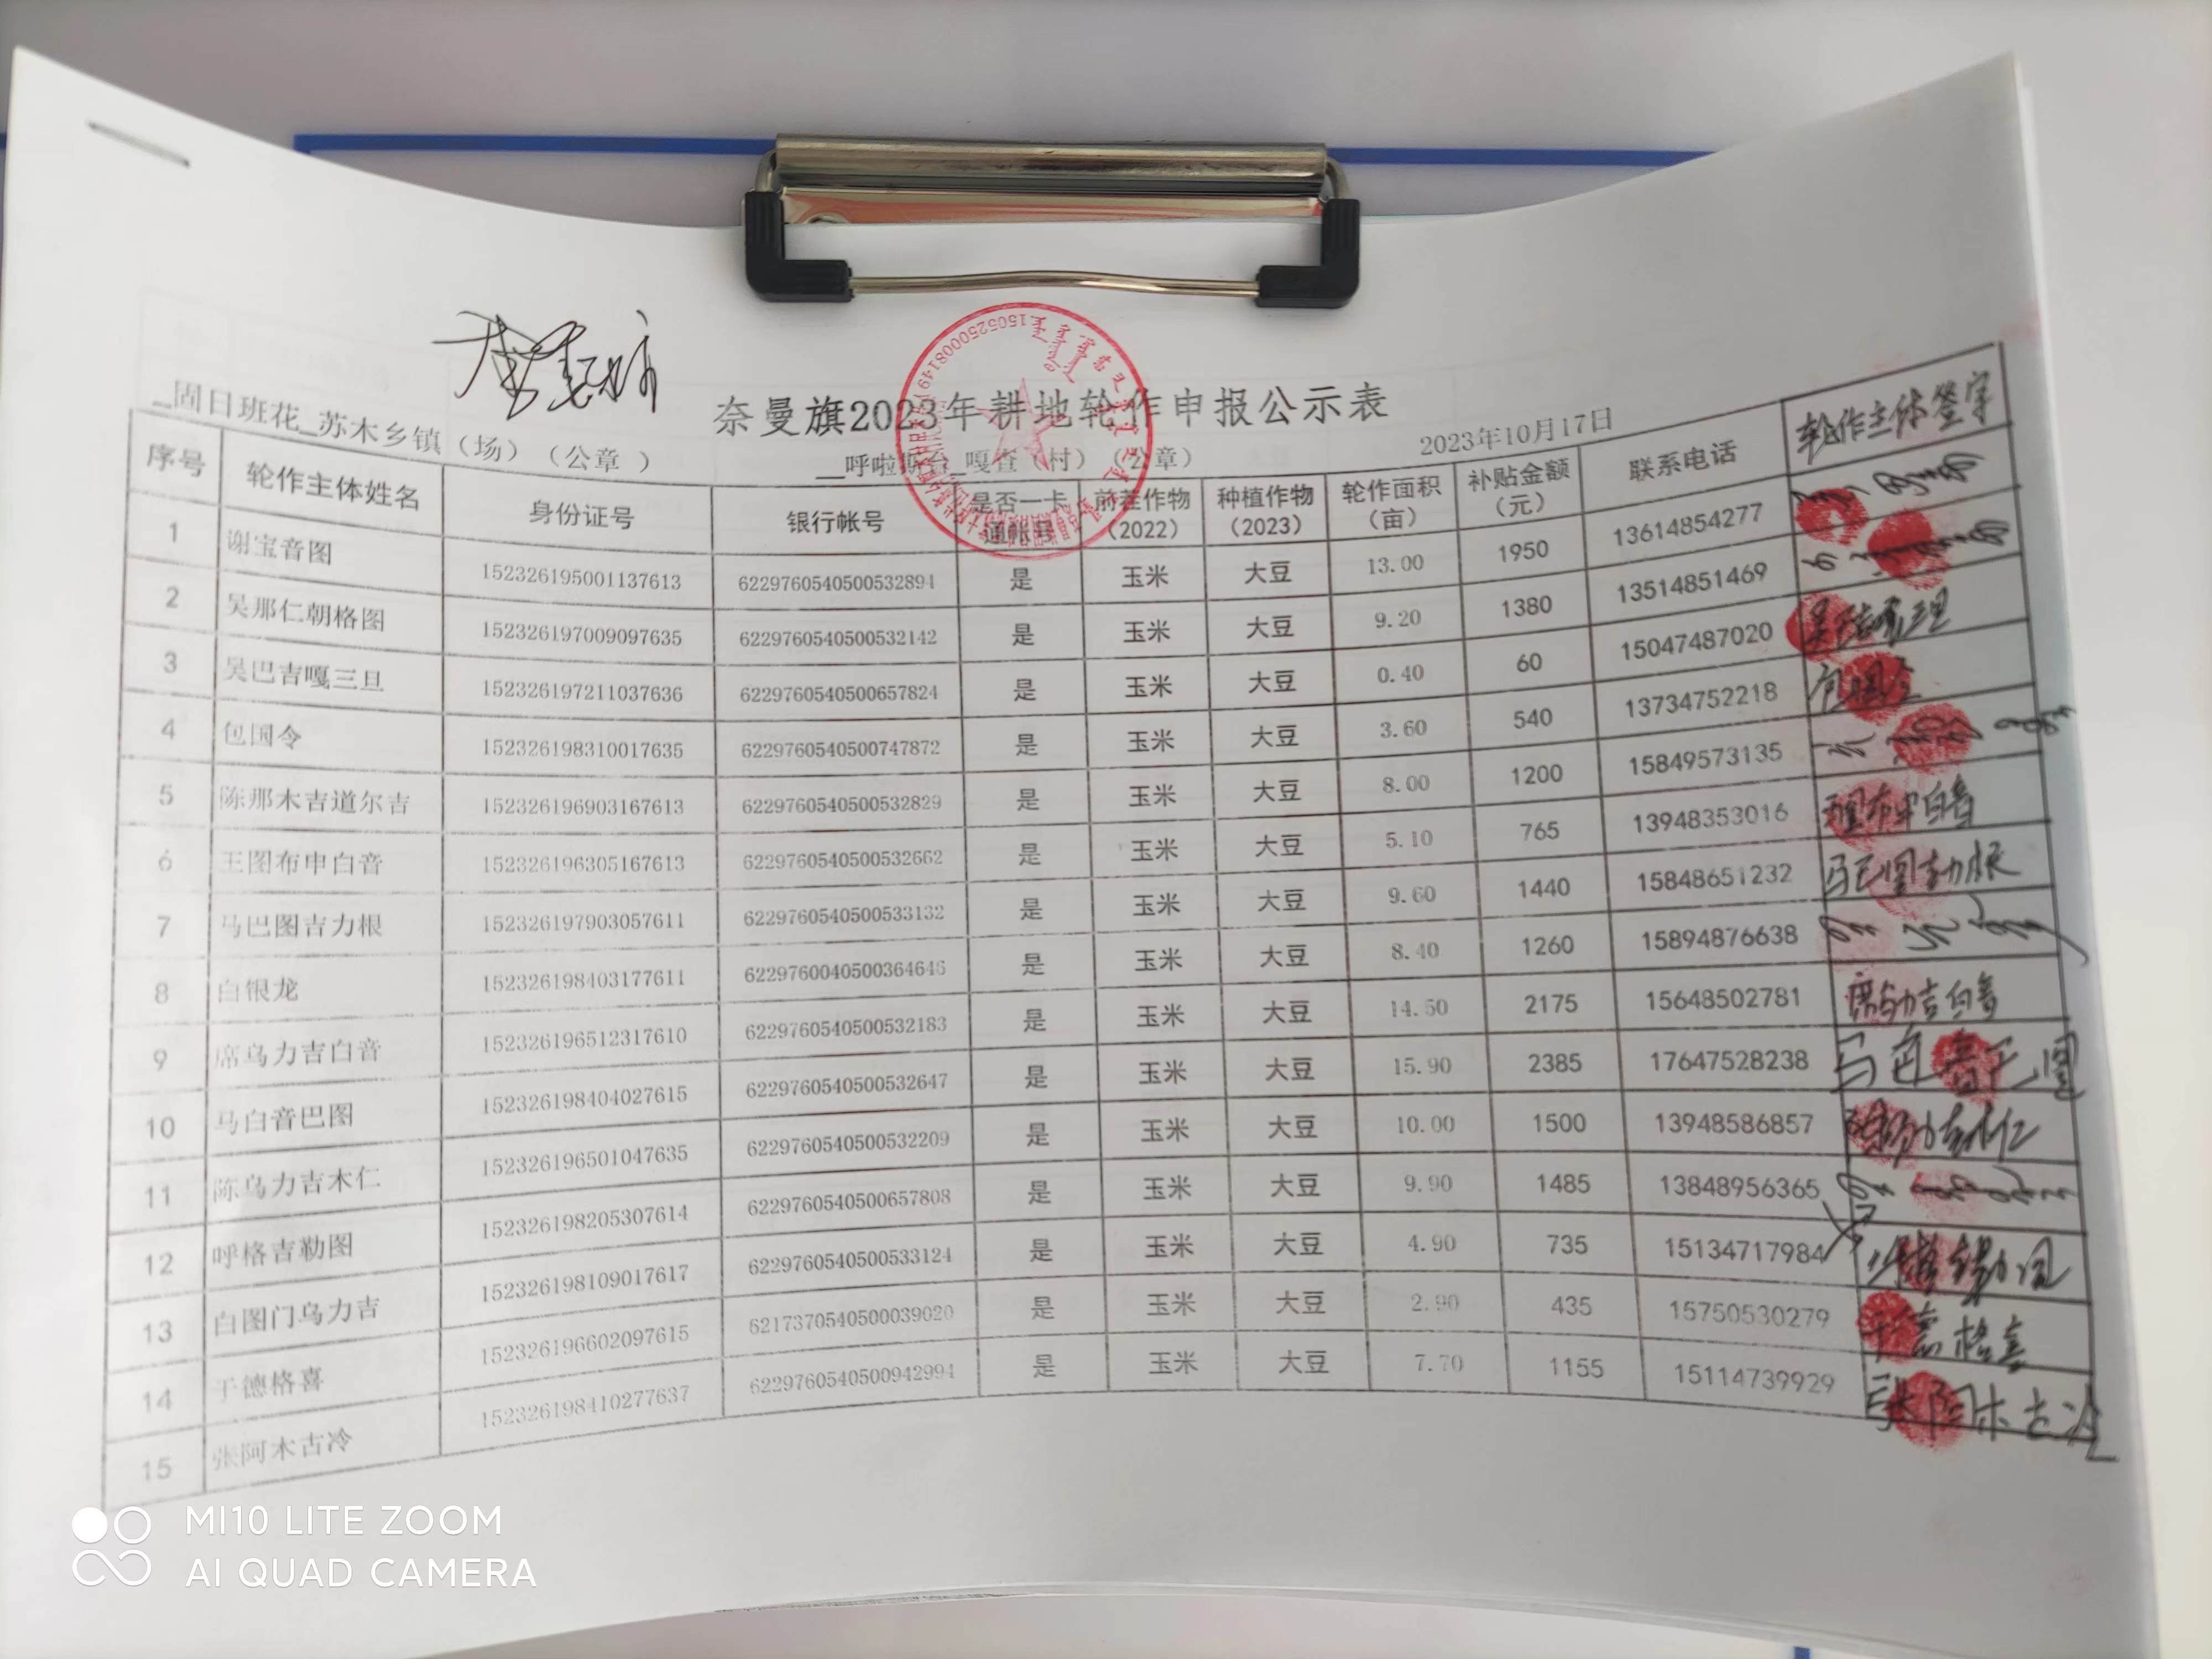 奈曼旗2023年耕地轮作申报公示表
_固日班花_苏木乡镇（场）（公章 ） __呼啦斯台_嘎查（村）（公章） 2023年10月17日
序号 轮作主体姓名 身份证号 银行帐号 是否一卡通帐号 前茬作物（2022） 种植作物（2023） 轮作面积（亩） 补贴金额（元） 联系电话 轮作主体签字
1 谢宝音图 152326195001137613 6229760540500532894 是 玉米 大豆 13.00 1950 13614854277
2 吴那仁朝格图 152326197009097635 6229760540500532142 是 玉米 大豆 9.20 1380 13514851469
3 吴巴吉嘎三旦 152326197211037636 6229760540500657824 是 玉米 大豆 0.40 60 15047487020
4 包国令 152326198310017635 6229760540500747872 是 玉米 大豆 3.60 540 13734752218 包国令
5 陈那木吉道尔吉 152326196903167613 6229760540500532829 是 玉米 大豆 8.00 1200 15849573135
6 王图布申白音 152326196305167613 6229760540500532662 是 玉米 大豆 5.10 765 13948353016 王图布申白音
7 马巴图吉力根 152326197903057611 6229760540500533132 是 玉米 大豆 9.60 1440 15848651232
8 白银龙 152326198403177611 6229760040500364646 是 玉米 大豆 8.40 1260 15894876638
9 席乌力吉白音 152326196512317610 6229760540500532183 是 玉米 大豆 14.50 2175 15648502781
10 马白音巴图 152326198404027615 6229760540500532647 是 玉米 大豆 15.90 2385 17647528238
11 陈乌力吉木仁 152326196501047635 6229760540500532209 是 玉米 大豆 10.00 1500 13948586857
12 呼格吉勒图 152326198205307614 6229760540500657808 是 玉米 大豆 9.90 1485 13848956365
13 白图门乌力吉 152326198109017617 6229760540500533124 是 玉米 大豆 4.90 735 15134717984
14 于德格喜 152326196602097615 6217370540500039020 是 玉米 大豆 2.90 435 15750530279 于德格喜
15 张阿木古冷 152326198410277637 6229760540500942994 是 玉米 大豆 7.70 1155 15114739929 张阿木古冷
MI10 LITE ZOOM
AI QUAD CAMERA